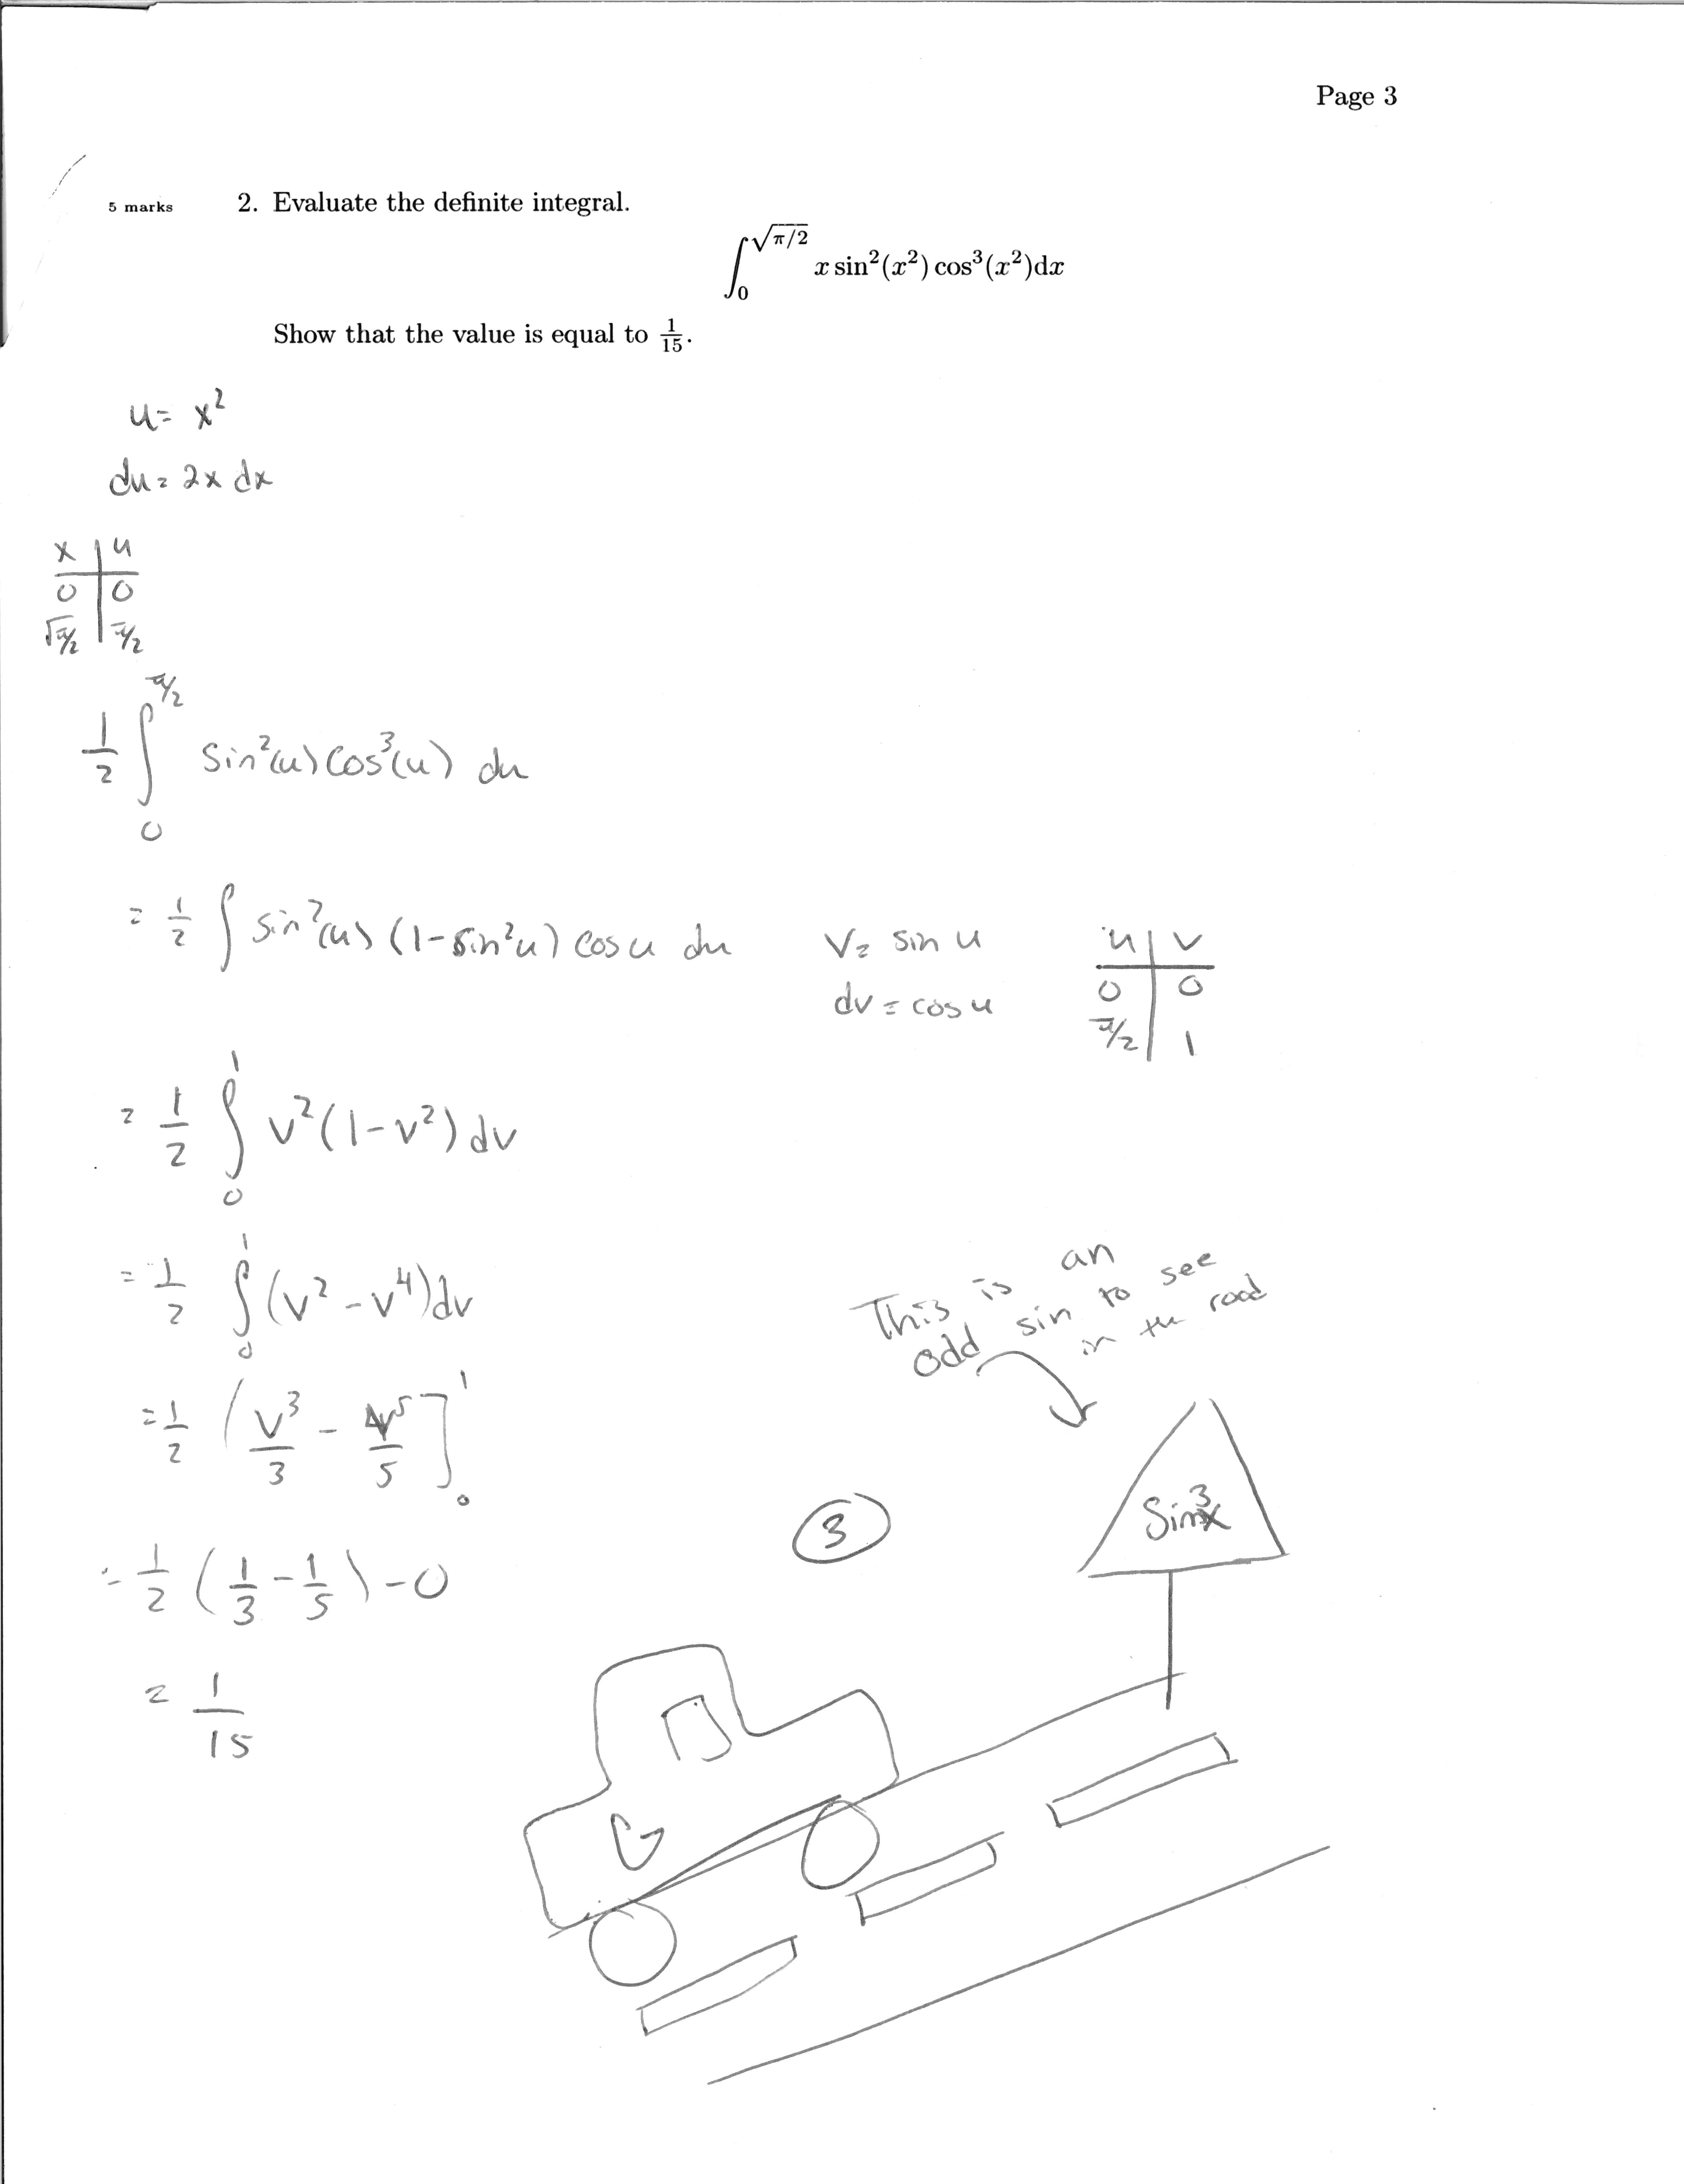 Page 3
5 marks 2. Evaluate the definite integral.
∫₀^{√(π/2)} x sin²(x²) cos³(x²)dx
Show that the value is equal to 1/15.
u = x²
du = 2x dx
x | u
0 | 0
√π/2 | π/2
1/2 ∫₀^{π/2} sin²(u) cos³(u) du
= 1/2 ∫ sin²(u) (1-sin²u) cos u du
v = sin u
dv = cos u
u | v
0 | 0
π/2 | 1
= 1/2 ∫₀¹ v²(1-v²) dv
= 1/2 ∫₀¹ (v² - v⁴) dv
= 1/2 ( v³/3 - v⁵/5 ]₀¹
= 1/2 ( 1/3 - 1/5 ) - 0
= 1/15
This is an
odd sin to see
in the road
3
Sin³x
G